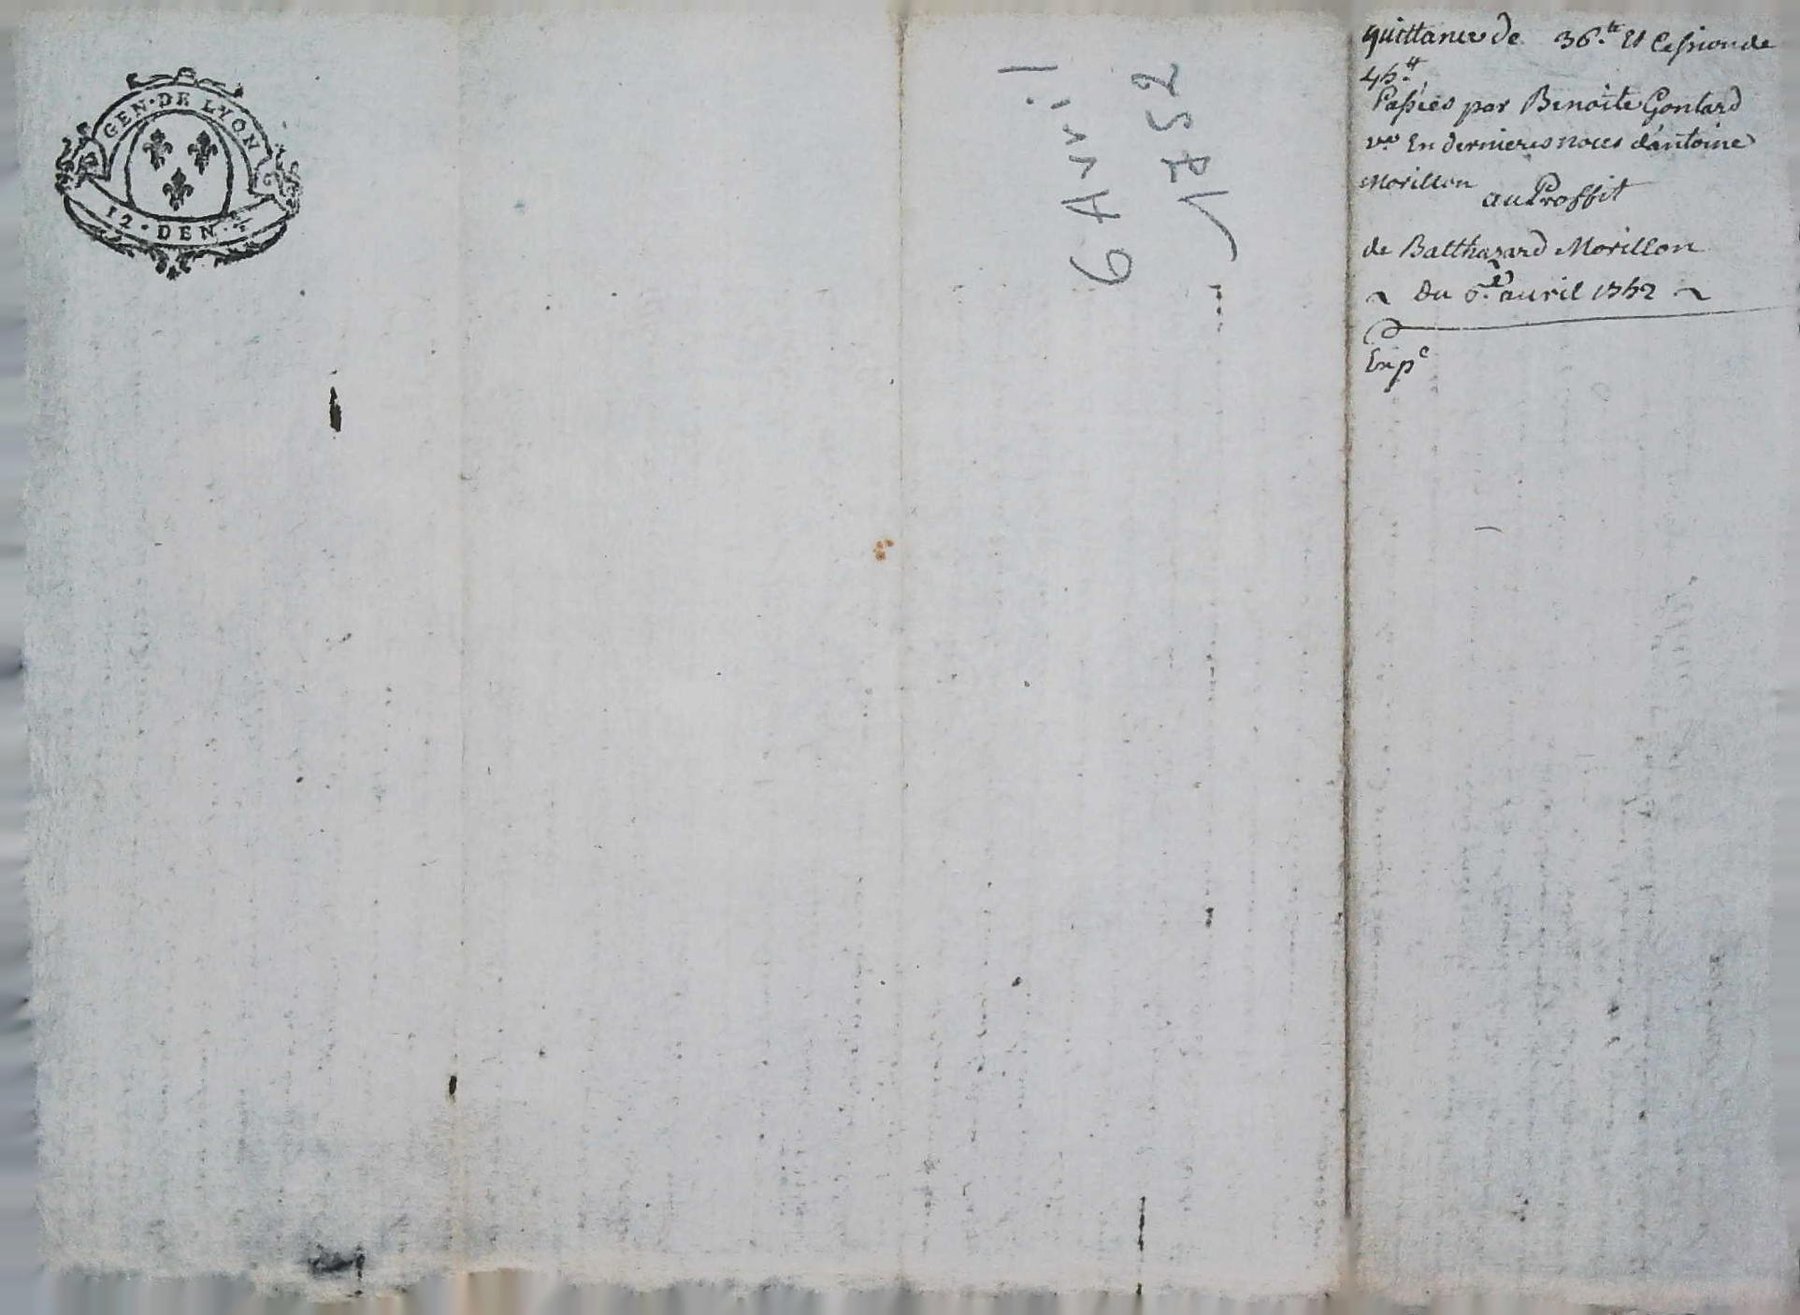 GEN · DE LYON
12 · DEN ·
6 Avril
1752
quittance de 36.tt Et Cession de
45.tt
Passées par Benoite Gontard
ve. En dernieres noces d'antoine
Morillon
au Proffit
de Balthazard Morillon
~ Du 6.e avril 1752 ~
Exp.e